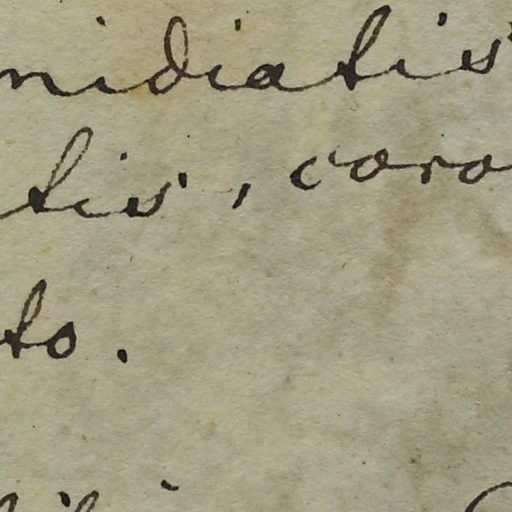 nidiatis
tis, coro
to.